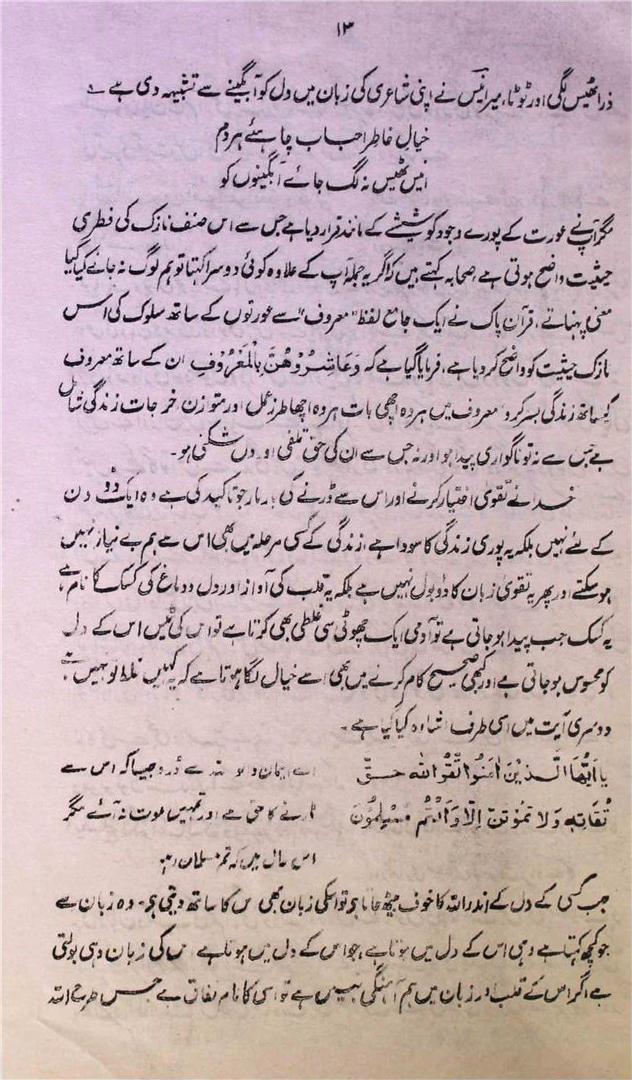 ۱۳
ذرا ٹھیس لگی اور ٹوٹا، میر انیسؔ نے اپنی شاعری کی زبان میں دل کو آبگینے سے تشبیہ دی ہے ؎
خیالِ خاطرِ احباب چاہئے ہر دم
انیسؔ ٹھیس نہ لگ جائے آبگینوں کو
مگر آپؐ نے عورت کے پورے وجود کو شیشے کے مانند قرار دیا ہے جس سے اس صنف نازک کی فطری
حیثیت واضح ہوتی ہے صحابہ کہتے ہیں کہ اگر یہ جملہ آپ کے علاوہ کوئی دوسرا کہتا تو ہم لوگ نہ جانے کیا کیا
معنی پہناتے، قرآن پاک نے ایک جامع لفظ "معروف" سے عورتوں کے ساتھ سلوک کی اس
نازک حیثیت کو واضح کر دیا ہے، فرمایا گیا ہے کہ وَعَاشِرُوْهُنَّ بِالْمَعْرُوْفِ ان کے ساتھ معروف
کے ساتھ زندگی بسر کرو، معروف میں ہر وہ اچھی بات ہر وہ اچھا طرز عمل اور متوازن خرجات زندگی شامل
ہے جس سے نہ تو ناگواری پیدا ہو اور نہ جس سے ان کی حق تلفی اور دل شکنی ہو۔
خدا نے تقویٰ اختیار کرنے اور اس سے ڈرنے کی بار بار جو تاکید کی ہے وہ ایک دو دن
کے لئے نہیں بلکہ یہ پوری زندگی کا سودا ہے، زندگی کے کسی مرحلہ میں بھی اس سے ہم بے نیاز نہیں
ہو سکتے اور پھر یہ تقویٰ زبان کا دو بول نہیں ہے بلکہ یہ قلب کی آواز اور دل و دماغ کی کسک کا نام ہے
یہ کسک جب پیدا ہو جاتی ہے تو آدمی ایک چھوٹی سی غلطی بھی کرتا ہے تو اس کی ٹیس اس کے دل
کو محسوس ہو جاتی ہے اور کبھی صحیح کام کرنے میں بھی اسے خیال لگا ہوتا ہے کہ یہ کہیں غلط تو نہیں ہے
دوسری آیت میں اسی طرف اشارہ کیا گیا ہے۔
يَا اَيُّهَا الَّذِيْنَ اٰمَنُوا اتَّقُوا اللّٰهَ حَقَّ اے ایمان والو اللہ سے ڈرو جیسا کہ اس سے
تُقَاتِهٖ وَلَا تَمُوْتُنَّ اِلَّا وَاَنْتُمْ مُّسْلِمُوْنَ ڈرنے کا حق ہے اور تمہیں موت نہ آئے مگر
اس حال میں کہ تم مسلمان رہو
جب کسی کے دل کے اندر اللہ کا خوف بیٹھ جاتا ہے تو اسکی زبان بھی اس کا ساتھ دیتی ہے۔ وہ زبان سے
جو کچھ کہتا ہے وہی اس کے دل میں ہوتا ہے، جو اس کے دل میں ہوتا ہے اس کی زبان وہی بولتی
ہے اگر اس کے قلب اور زبان میں ہم آہنگی نہیں ہے تو اسی کا نام نفاق ہے جس طرح اللہ